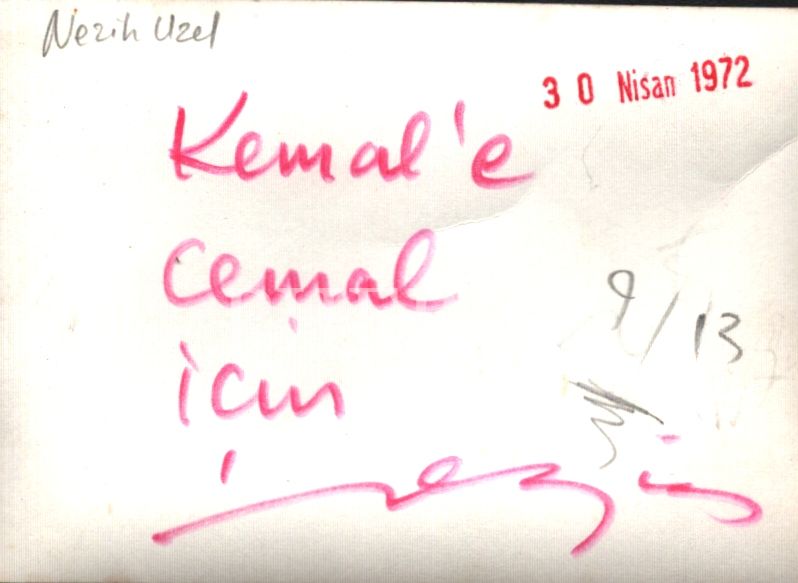 Nezih Uzel
30 Nisan 1972
Kemal'e
cemal
için
9/13